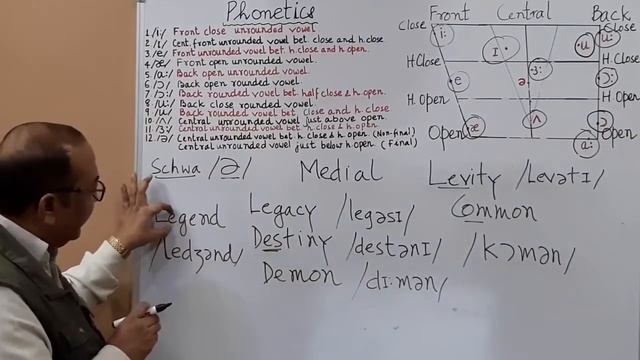 Phonetics
1 /i:/ Front close unrounded vowel
2 /ɪ/ Cent. front unrounded vowel bet. close and h. close
3 /e/ Front unrounded vowel bet. h. close and h. open.
4 /æ/ Front open unrounded vowel.
5 /ɑ:/ Back open unrounded vowel.
6 /ɔ/ Back open rounded vowel.
7 /ɔ:/ Back rounded vowel bet. half close & h. open.
8 /u:/ Back close rounded vowel
9 /u/ Back rounded vowel bet close and h. close
10 /ʌ/ Central unrounded vowel just above open
11 /ɜ:/ Central unrounded vowel bet h. close & h. open
12 /ə/ Central unrounded vowel bet h. close & h. open (Non-final)
Central unrounded vowel just below h open (Final)
Front Central Back
Close Close
i: u:
ɪ u
H. Close H. Close
ɜ: ɔ:
e ə
H. Open H. Open
æ ʌ ɔ
Open Open
ɑ:
Schwa /ə/ Medial Levity /levətɪ/
Legend Legacy /legəsɪ/ Common
/ledʒənd/ Destiny /destənɪ/ /kɔmən/
Demon /dɪ:mən/